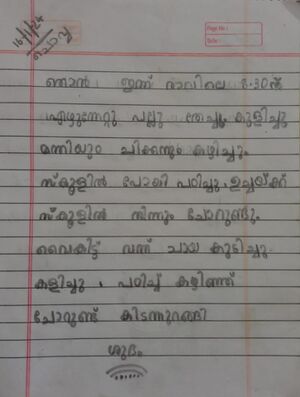 16/1/24
ചൊവ്വ
Page No.:
Date:
ഞാൻ ഇന്ന് രാവിലെ 8.30ന്
എഴുന്നേറ്റു പല്ലു തേച്ചു കുളിച്ചു
മന്നിയും ചിക്കനും കഴിച്ചു.
സ്കൂളിൽ പോയി പഠിച്ചു. ഉച്ചയ്ക്ക്
സ്കൂളിൽ നിന്നും ചോറുണ്ടു.
വൈകിട്ട് വന്ന് ചായ കുടിച്ചു
കളിച്ചു , പഠിച്ച് കഴിഞ്ഞ്
ചോറുണ്ട് കിടന്നുറങ്ങി
ശുഭം